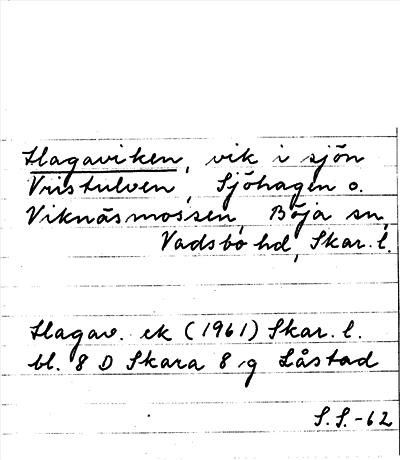 Hagaviken, vik i sjön
Vristulven, Sjöhagen o.
Viknäsmossen, Böja sn,
Vadsbo hd, Skar. l.
Hagav. ek (1961) Skar. l.
bl. 8 D Skara 8 g Låstad
S.S.-62